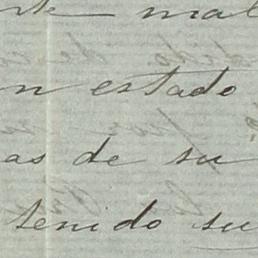 mal
n estado
as de su
tenido su